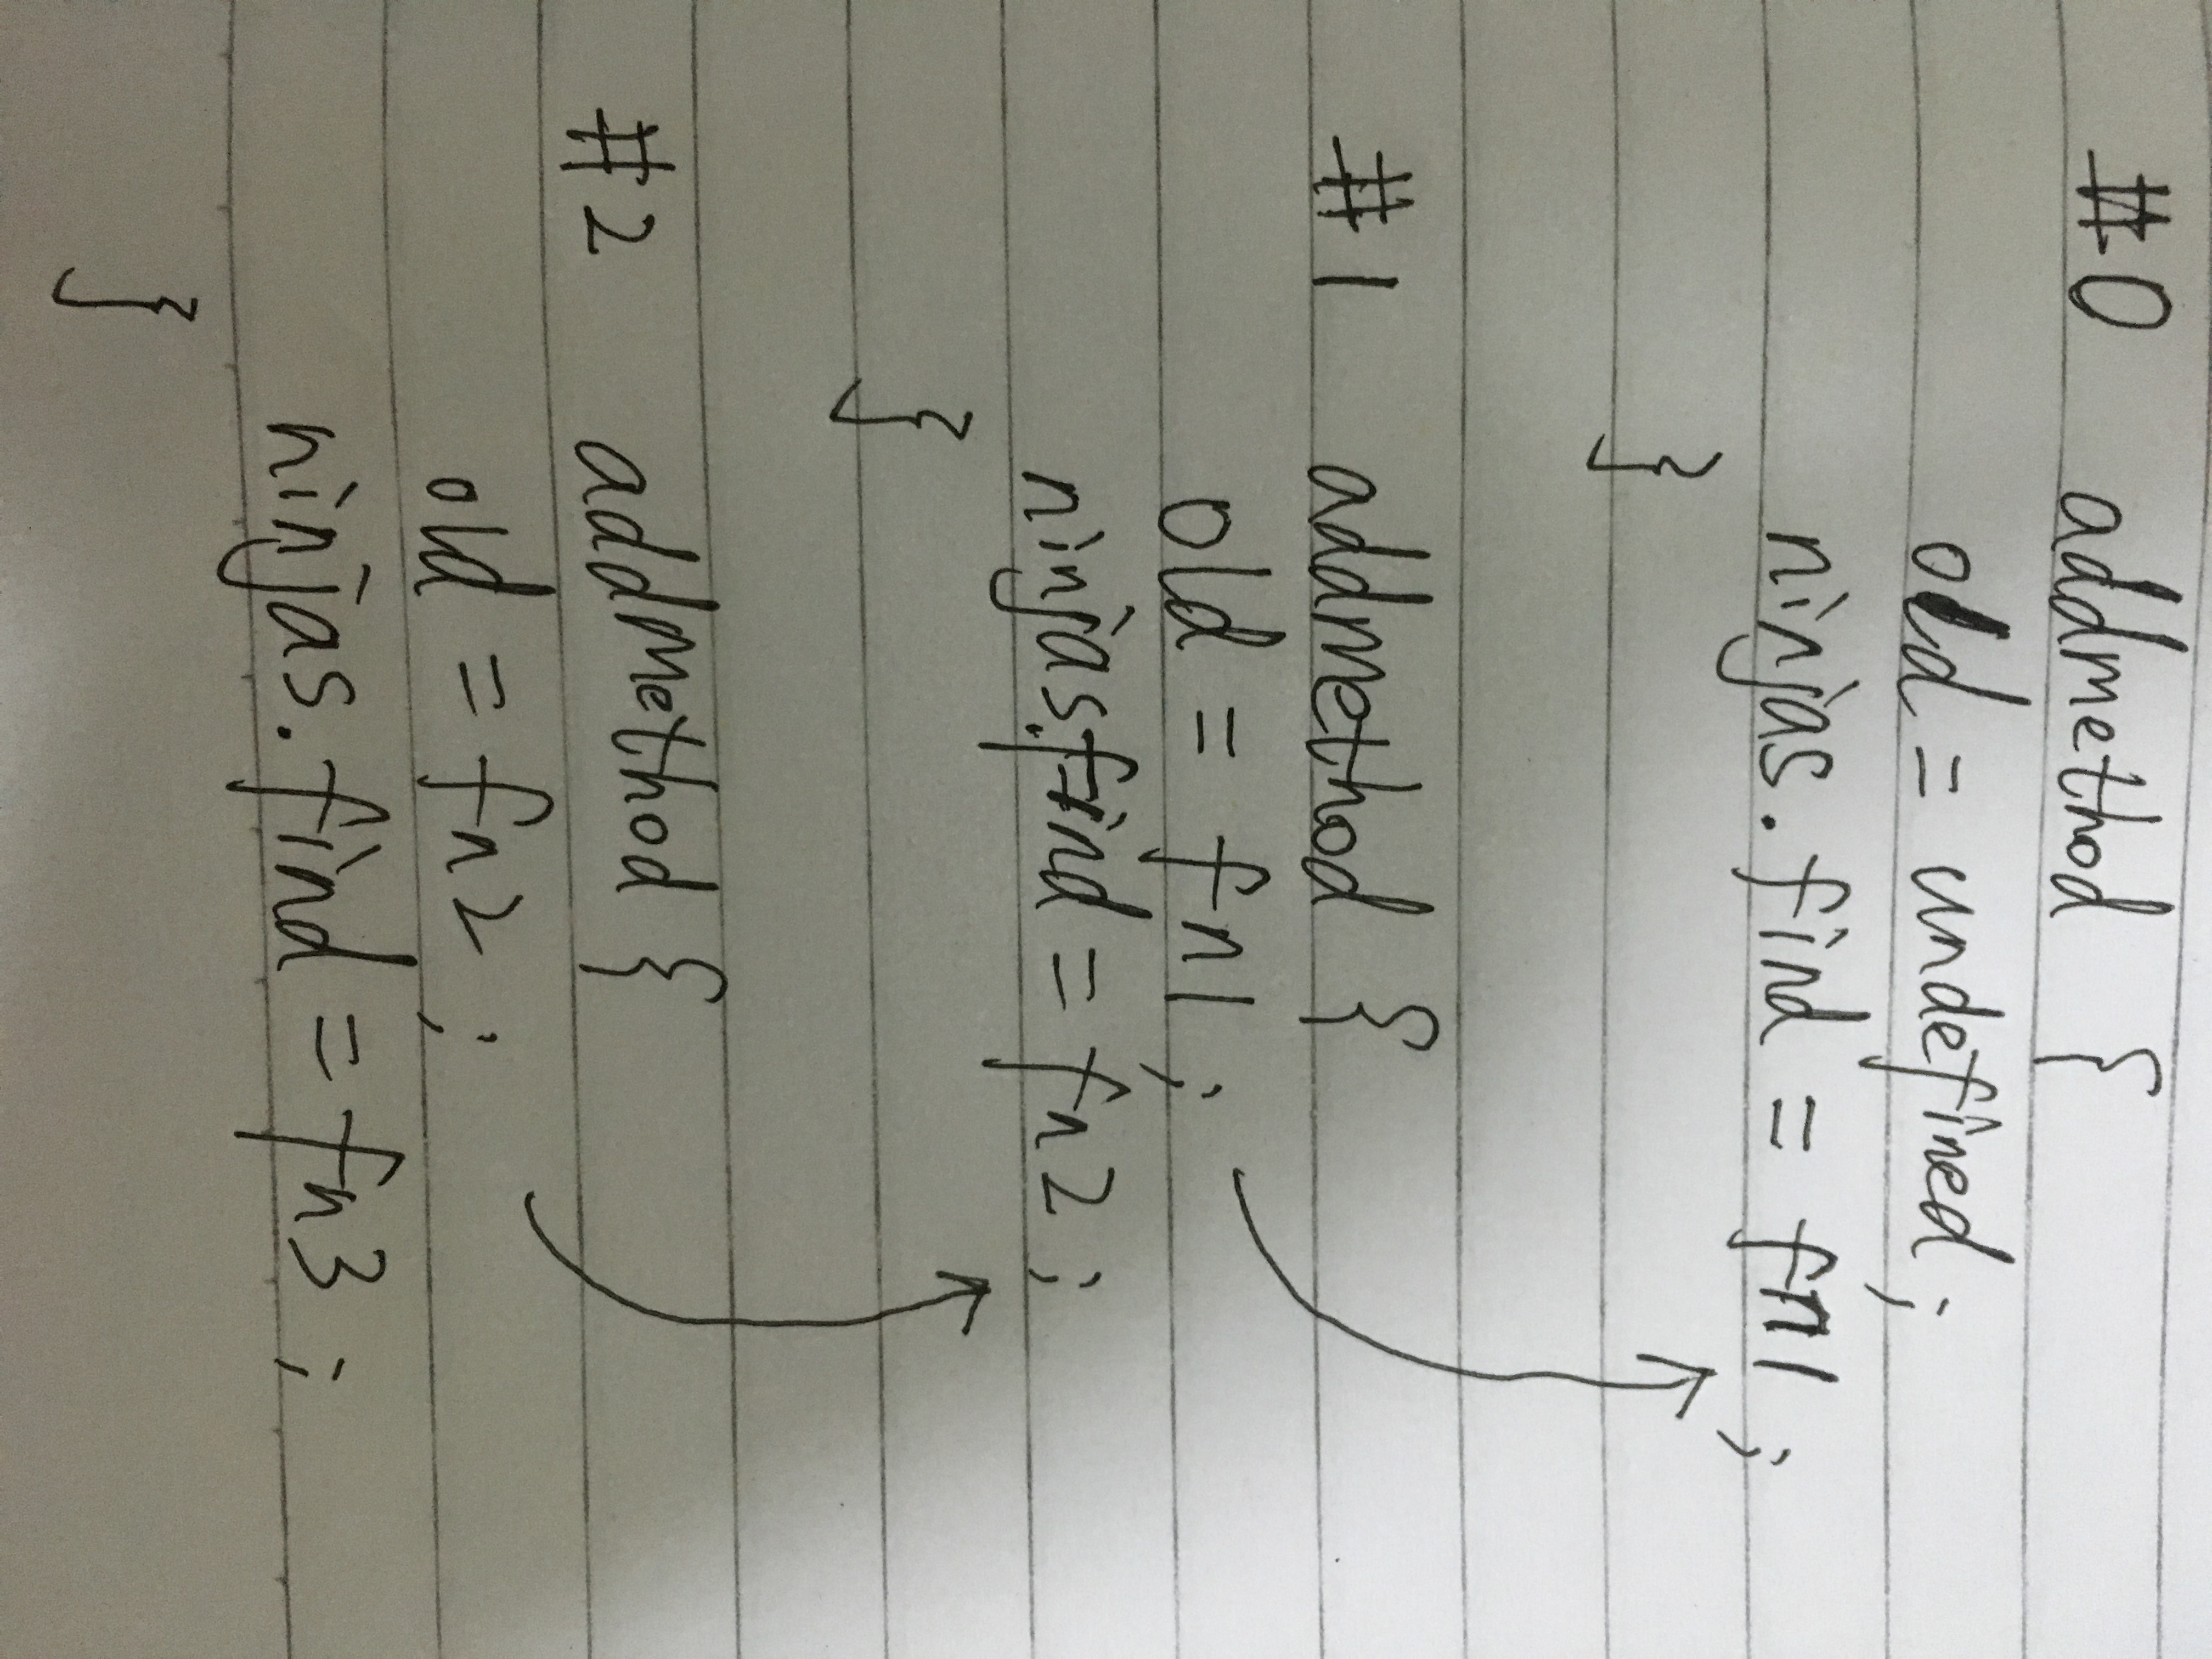 #0 addmethod {
old = undefined;
ninjas.find = fn1;
}
#1 addmethod {
old = fn1;
ninjas.find = fn2;
}
#2 addmethod {
old = fn2;
ninjas.find = fn3;
}